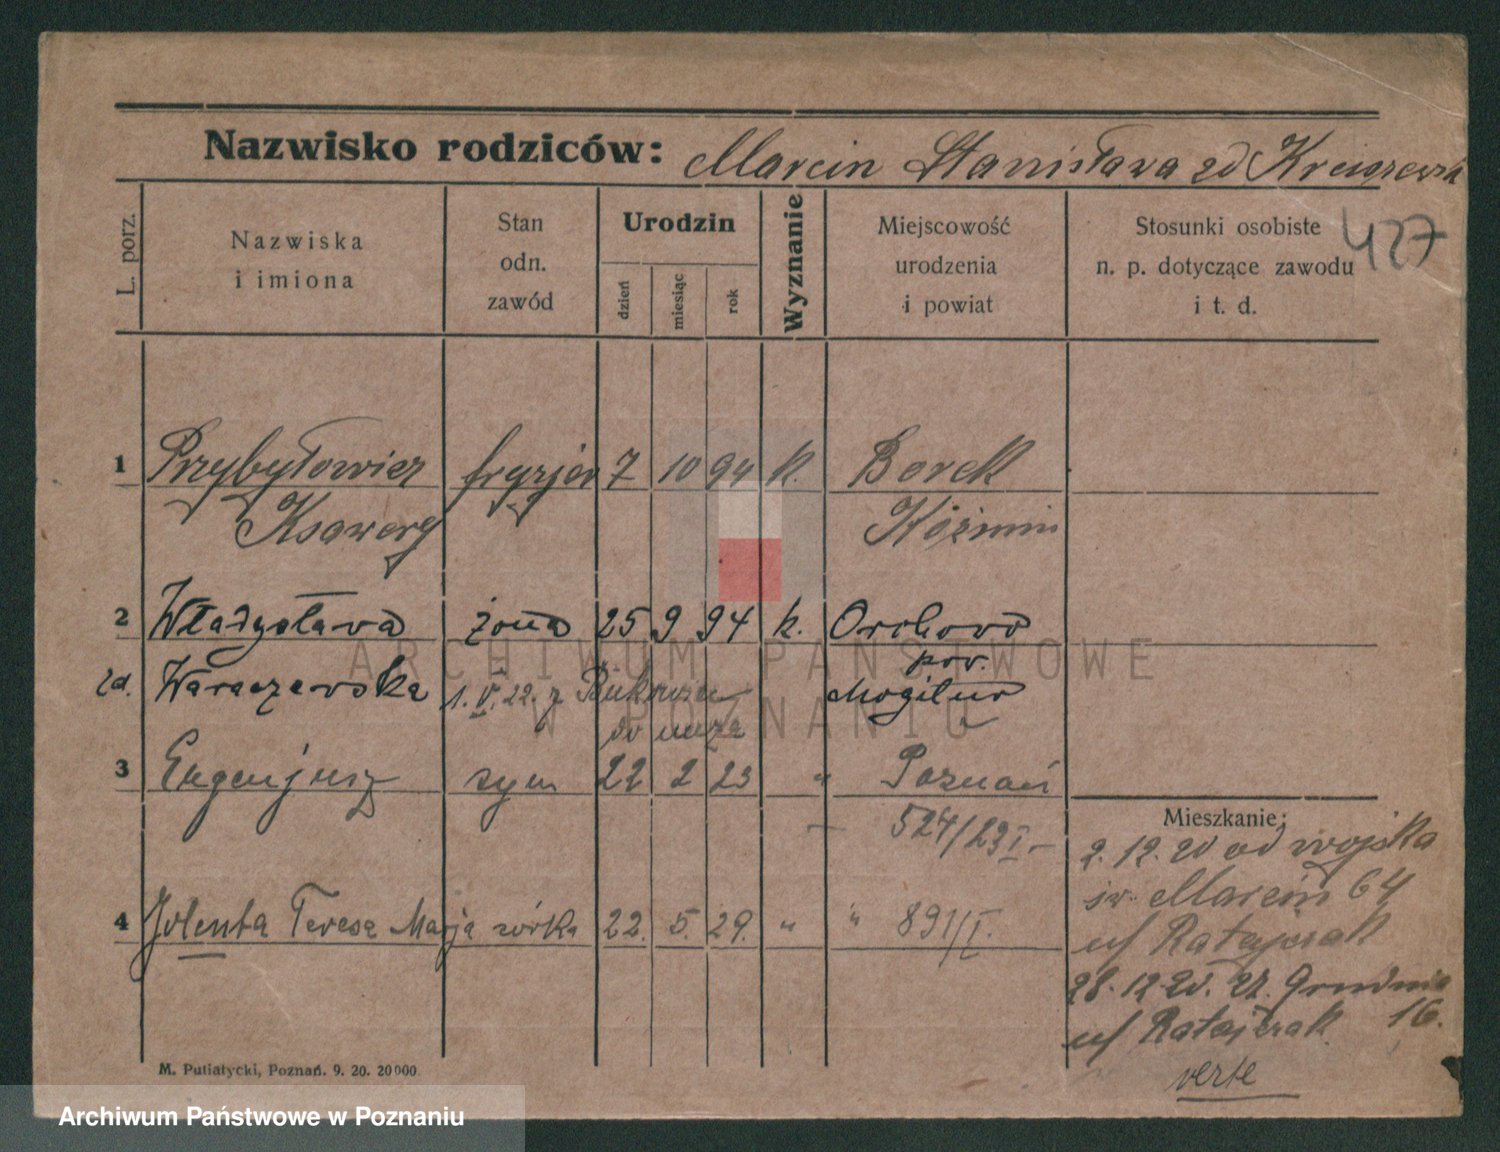 Nazwisko rodziców: Marcin Stanisława zd
427
L. porz.
Nazwiska i imiona
Stan odn. zawód
Urodzin
dzień
miesiąc
rok
Wyznanie
Miejscowość urodzenia i powiat
Stosunki osobiste n. p. dotyczące zawodu i t. d.
1 Przybyłowicz fryzjer 7 10 94 k. Borek
Ksawery Koźmin
2 Władysława żona 25 9 94 k. Orchowo
pow.
zd. 1. V. 22. z Mogilno
do męża
3 Eugenjusz syn 22 2 23 " Poznań
524/23 I –
4 Jolenta Teresa Marja córka 22. 5. 29. " " 891/I.
Mieszkanie:
2. 12. 20 od wojska
św. Marcin 64
u/ Ratajczak
28. 12. 20. 27. Grudnia
u/ Ratajczak 16.
verte
M. Putiatycki, Poznań. 9. 20. 20000
ARCHIWUM PAŃSTWOWE
W POZNANIU
Archiwum Państwowe w Poznaniu